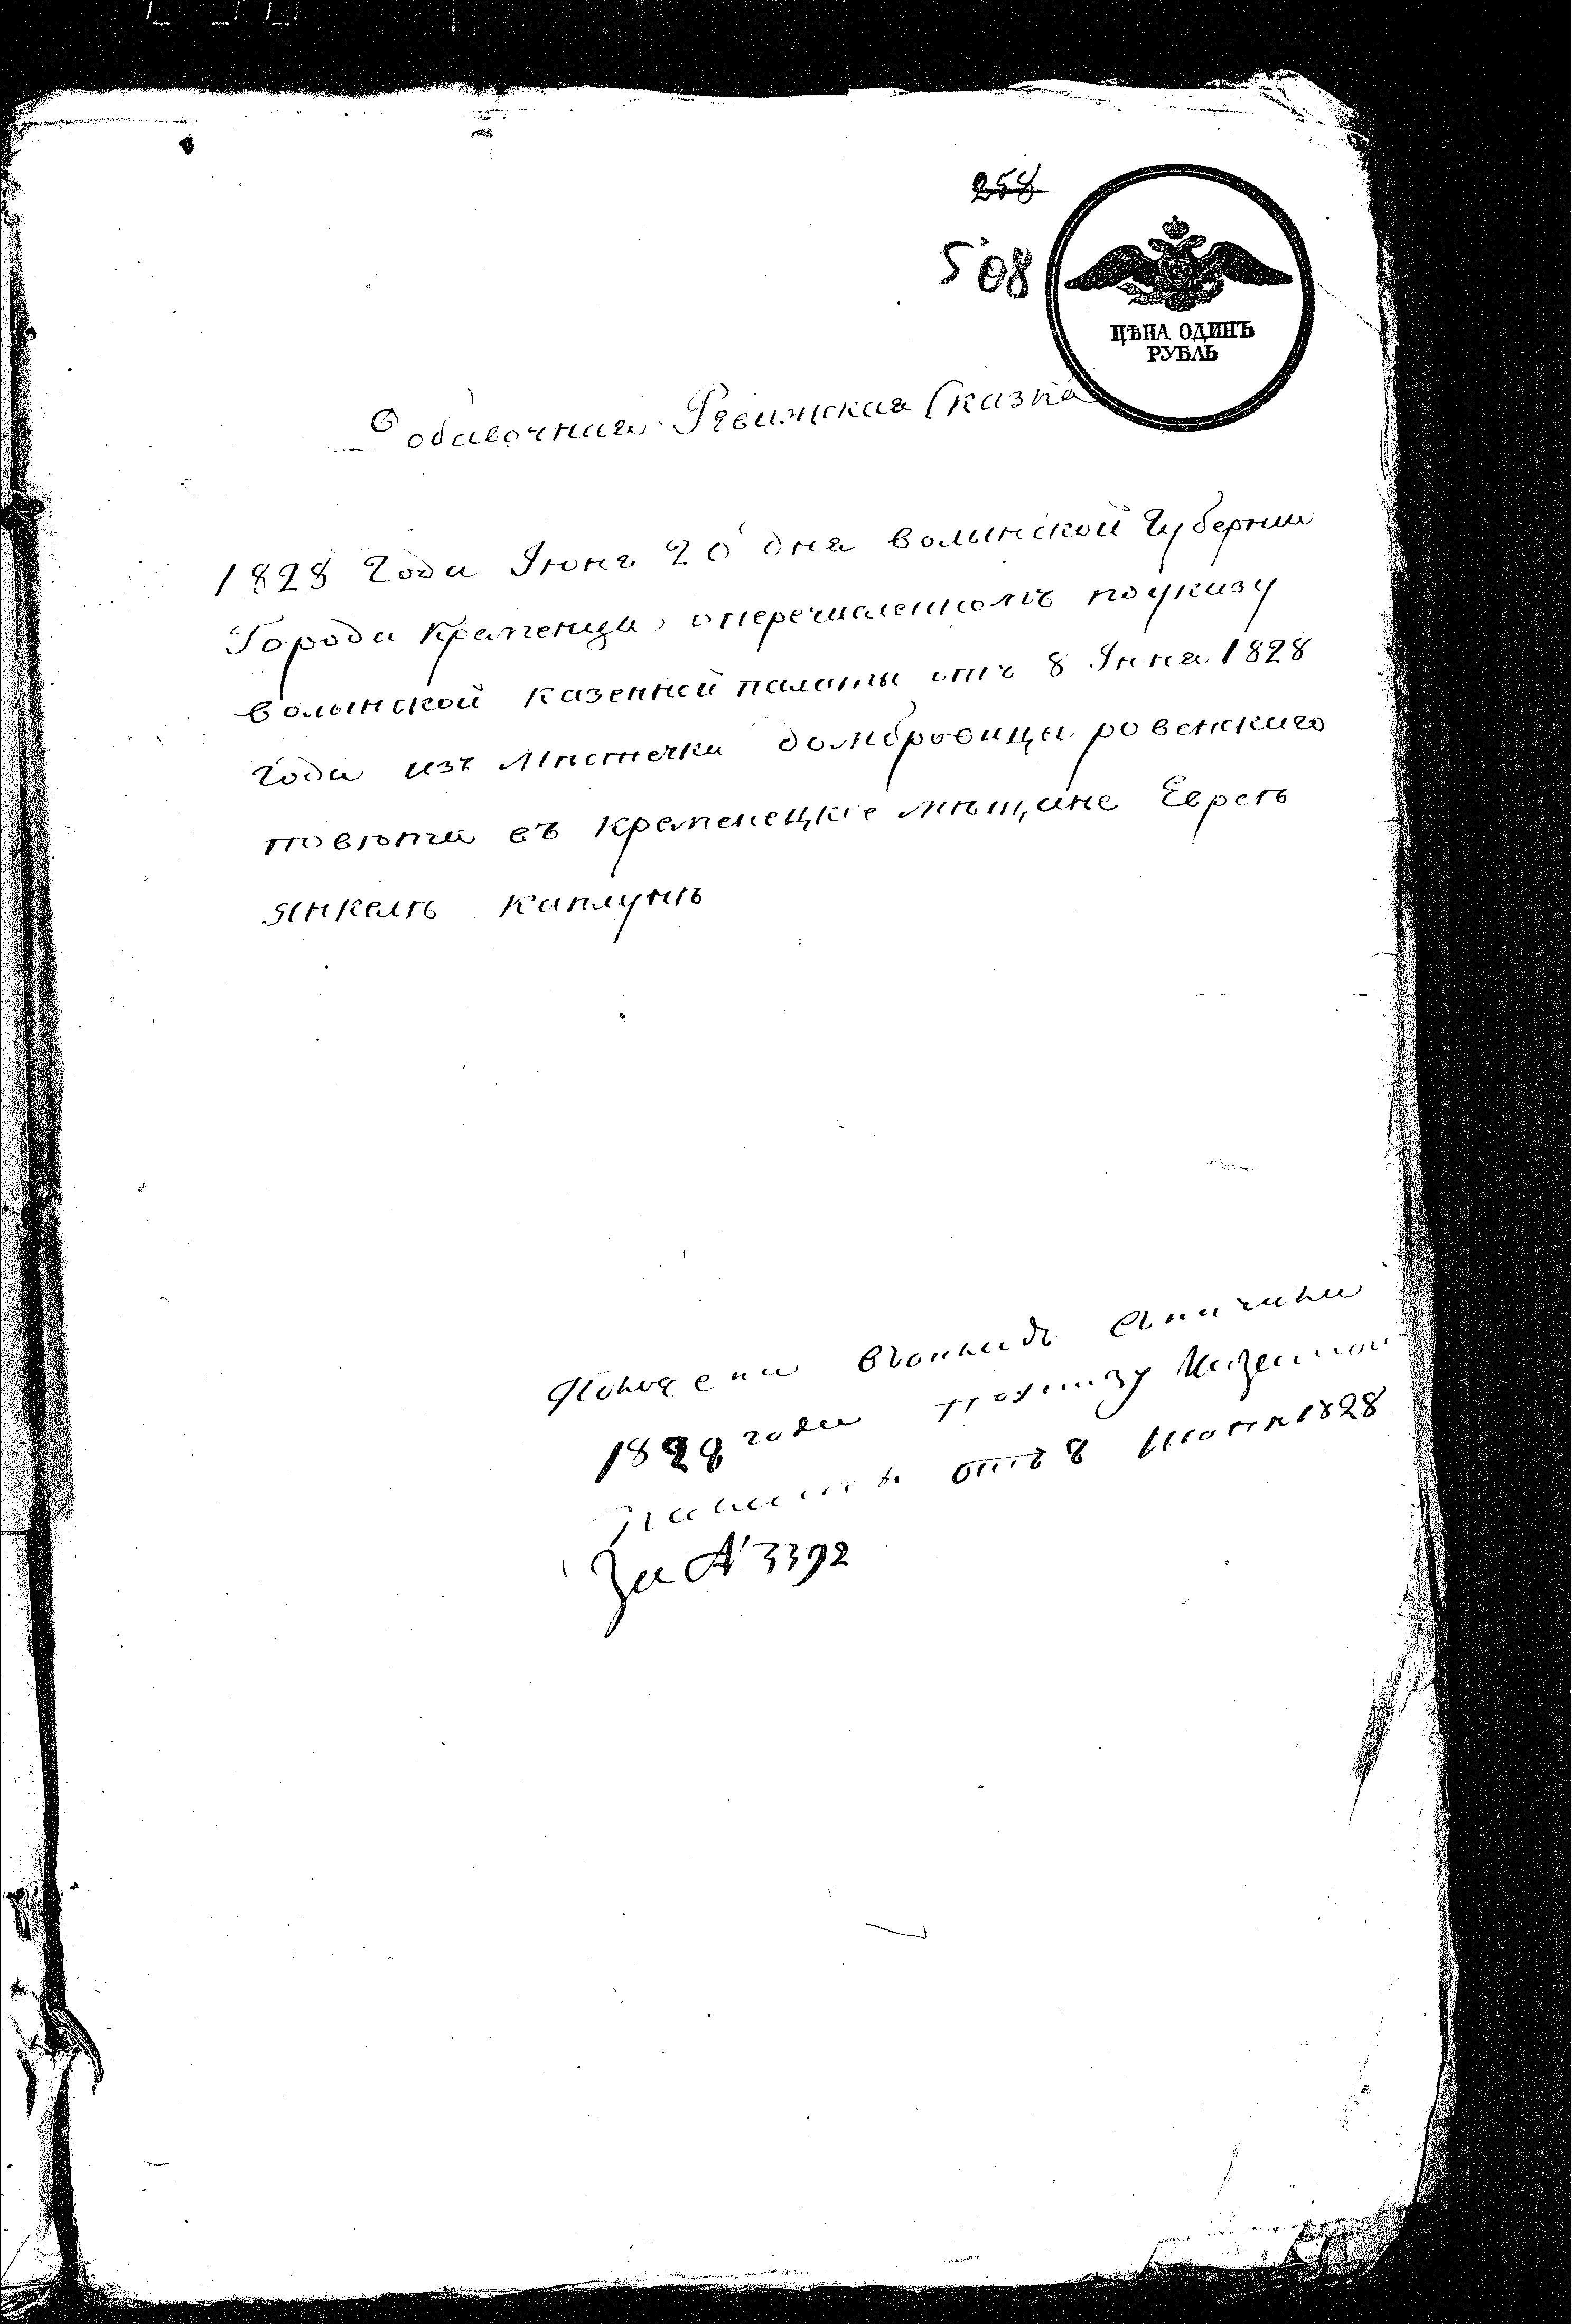 258
508
ЦѢНА ОДИНЪ
РУБЛЬ
Добавочная Ревижская Сказка
1828 Года Іюня 20 дня волынской Губернии
Города Кременца, оперечисленномъ поуказу
волынской казенней палаты отъ 8 Іюня 1828
года изъ Мистечка домбровицы ровенскаго
повѣта въ кременецкіе мѣщане Еврей
Янкель каплунъ
1828 года поуказу Казенной
Палаты отъ 8 Июня 1828
За № 3392